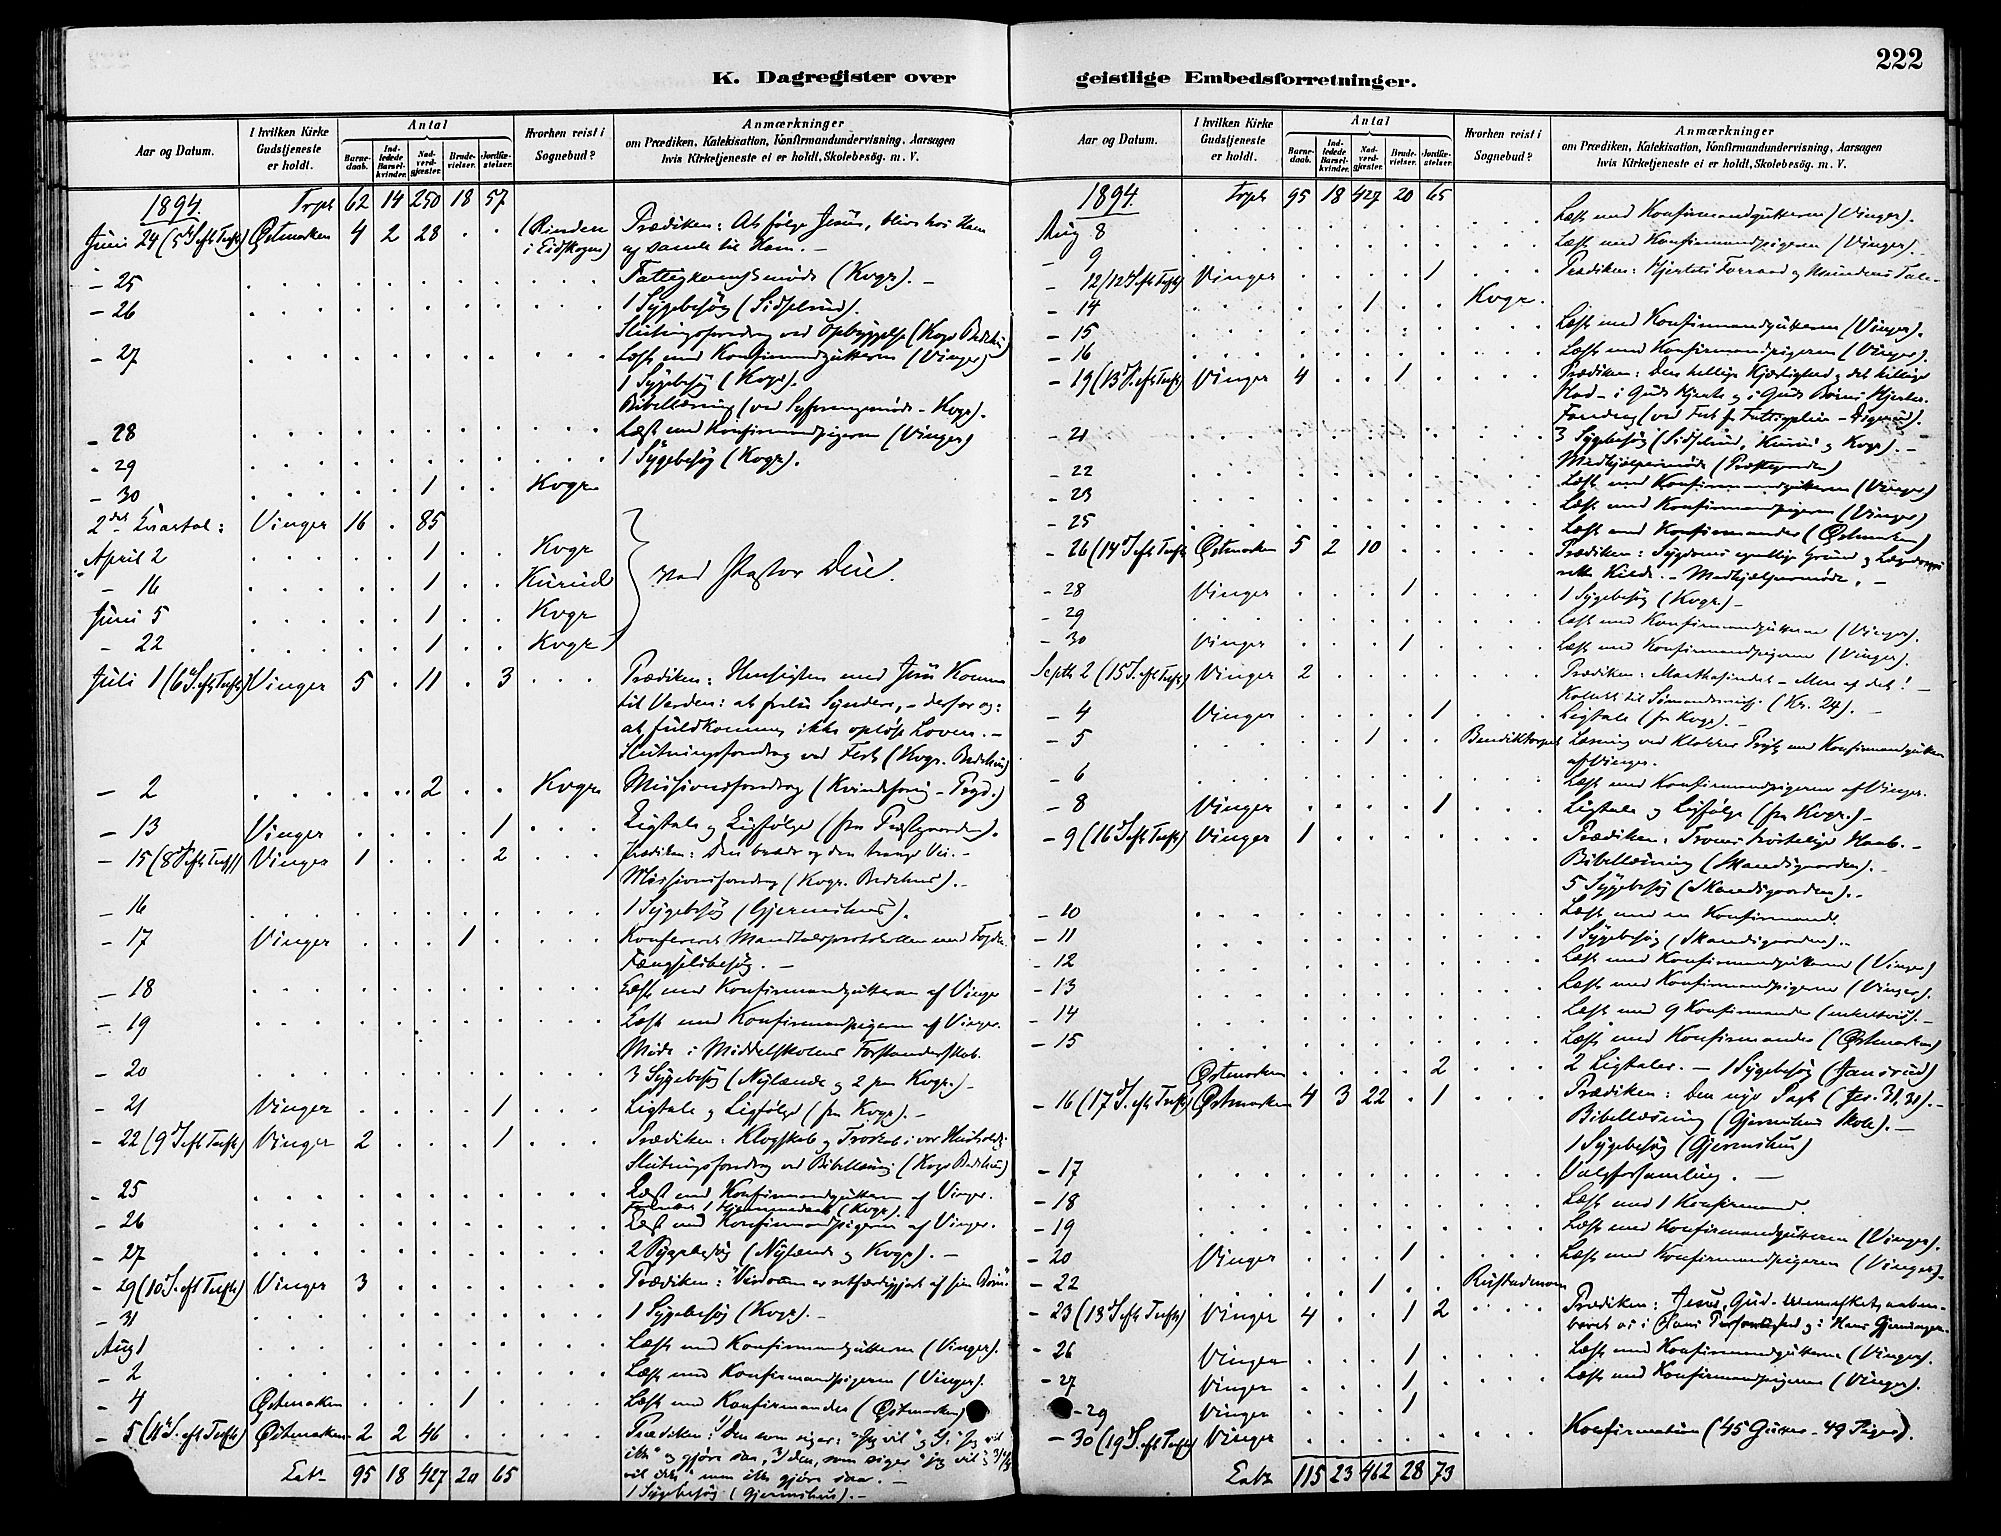 222
K. Dagregister over geistlige Embedsforretninger.
Aar og Datum. I hvilken Kirke Gudstjeneste er holdt. Antal Barnedaab. Indledede Barselkvinder. Nadverdgjæster. Brudevielser. Jordfæstelser. Hvorhen reist i Sognebud? Anmærkninger om Prædiken, Katekisation, Konfirmandundervisning, Aarsagen hvis Kirketjeneste ei er holdt, Skolebesög. m. V.
1894. Trpt 62 14 250 18 57
Juni 24 (5 S. eft Trefh) Østmarken 4 2 28 . . (Rinden Prædiken: At følge Jesus, blive hos Ham
i Eidskogen) og samle til Ham. –
– 25 Fattigkommissmøde (Kvgr). –
– 26 1 Sygebesøg (Sidselrud).
Slutningsforedrag ved Opbyggelse (Kvgr Bedehus)
– 27 Læst med Konfirmandgutterne (Vinger)
1 Sygebesøg (Kvgr).
Bibellæsning (ved Syforeningsmøde – Kvgr).
– 28 Læst med Konfirmandpigerne (Vinger)
– 29 1 Sygebesøg (Kvgr).
– 30 1 Kvgr
2det Kvartal: Vinger 16 . 85
April 2 1 Kvgr
– 16 1 Kurud ved Pastor Due.
Juni 5 1 Kvgr
– 22 1 Kvgr
Juli 1 (6 S. eft Trefh) Vinger 5 . 11 . 3 Prædiken: Hensigten med Jesu Komme
til Verden: at frelse Syndere, – derfor og:
at fuldkomme, ikke opløse Loven. –
Slutningsforedrag ved Fest (Kvgr. Bedehus)
– 2 2 Kvgr Missionsforedrag (Kvindeforeng – Prgd.)
– 13 Vinger 1 Ligtale og Ligfølge (fra Præstgaarden).
– 15 (8 S. eft Trefh) Vinger 1 . . . 2 Prædiken: Den brede og den trange Vei. –
Missionsforedrag (Kvgr. Bedehus). –
– 16 1 Sygebesøg (Gjermshus).
– 17 Vinger 1 Konfereret Mandtalsprotokollen med Fogden
Fængselsbesøg. –
– 18 Læst med Konfirmandgutterne af Vinger
– 19 Læst med Konfirmandpigerne af Vinger.
Møde i Middelskolens Forstanderskab.
– 20 3 Sygebesøg (Nylænde og 2 paa Kvgr.) –
– 21 Vinger 1 Ligtale og Ligfølge (fra Kvgr). –
– 22 (9 S. eft Trefh) Vinger 2 . . . 1 Prædiken: Klogskab og Troskab i vor Husholdn.
Slutningsforedrag ved Bibellæsning (Kvgr Bedehus)
– 25 Læst med Konfirmandgutterne af Vinger.
1 Hjemmedaab (Kvgr).
– 26 Læst med Konfirmandpigerne af Vinger.
– 27 2 Sygebesøg (Nylænde og Kvgr). –
– 29 (10 S. eft Trefh) Vinger 3 Prædiken: Visdommen er retfærdiggjort af sine Børn
– 31 1 Sygebesøg (Kvgr). –
Aug 1 Læst med Konfirmandgutterne (Vinger).
– 2 Læst med Konfirmandpigerne (Vinger).
– 4 Østmarken 1 Læst med Konfirmander (Østmarken)
– 5 (11 S. eft Trefh) Østmarken 2 2 46 Prædiken: Den som siger: "Jeg vil
ikke" og gjøre saa, som siger "jeg vil
vil ikke" men ikke gjøre saa. –
1 Sygebesøg (Gjermshus). –
Lats 95 18 427 20 65
Aar og Datum. I hvilken Kirke Gudstjeneste er holdt. Antal Barnedaab. Indledede Barselkvinder. Nadverdgjæster. Brudevielser. Jordfæstelser. Hvorhen reist i Sognebud? Anmærkninger om Prædiken, Katekisation, Konfirmandundervisning, Aarsagen hvis Kirketjeneste ei er holdt, Skolebesög. m. V.
1894 Trpt 95 18 427 20 65
Aug 8 Læst med Konfirmandgutterne (Vinger).
– 9 Læst med Konfirmandpigerne (Vinger).
– 12 (12 S. eft Trefh) Vinger 1 Prædiken: Hjertets Forraad og Mundens Tale
– 14 1 Kvgr.
– 15 Læst med Konfirmandgutterne (Vinger).
– 16 Læst med Konfirmandpigerne (Vinger).
– 19 (13 S. eft Trefh) Vinger 4 . . 1 Prædiken: Den hellige Kjærlighed og det hellige
Had – i Guds Hjerte og i Guds Børns Hjerter.
Foredrag (ved Fest f. Fattigpleien – Digerud).
– 21 3 Sygebesøg (Sidselrud, Kurud og Kvgr). –
– 22 Medhjælpermøde (Præstegaarden)
– 23 Læst med Konfirmandgutterne (Vinger)
Læst med Konfirmandpigerne (Vinger)
– 25 Læst med Konfirmander (Østmarken)
– 26 (14 S. eft Trefh) Østmarken 5 2 10 Prædiken: Sygdoms egentlige Grund og Lægedommens
rette Kilde. – Medhjælpermøde. –
– 28 Vinger 1 1 Sygebesøg (Kvgr.) –
– 29 Læst med Konfirmandgutterne (Vinger).
– 30 Vinger 1 Læst med Konfirmandpigerne (Vinger).
Septb 2 (15 S. eft Trefh) Vinger 2 Prædiken: Marthasindet – Men af det! –
Kollekt til Sømandsmiss. (Kr. 24). –
– 4 Vinger 1 Ligtale (fra Kvgr). –
– 5 1 Bendiktorpet Læsning ved Klokker med Konfirmandgutterne
af Vinger.
– 6 Læst med Konfirmandpigerne af Vinger.
– 8 Vinger 1 Ligtale og Ligfølge (fra Kvgr.) –
– 9 (16 S. eft Trefh) Vinger 1 Prædiken: Troens trøstelige Haab. –
Bibellæsning (Skandsgaarden). –
5 Sygebesøg (Skandsgaarden). –
– 10 Læst med en Konfirmand.
– 11 1 Sygebesøg (Skandsgaarden). –
– 12 Læst med Konfirmandgutterne (Vinger)
– 13 Læst med Konfirmandpigerne (Vinger).
– 14 Læst med 9 Konfirmander (enkeltvis). –
– 15 Læst med Konfirmander (Østmarken)
Østmarken 2 2 Ligtaler. – 1 Sygebesøg (Jansrud)
– 16 (17 S. eft Trefh) Østmarken 4 3 22 . 1 Prædiken: Den nye Pagt (Jer. 31,30). –
Bibellæsning (Gjermshus Skole). –
1 Sygebesøg (Gjermshus)
– 17 Valgforsamling. –
– 18 Læst med 1 Konfirmand.
– 19 Læst med Konfirmandgutterne (Vinger).
– 20 Vinger 1 Læst med Konfirmandpigerne (Vinger). –
– 22 1 Rustadmoen
– 23 (18 S. eft Trefh) Vinger 4 . . 1 2 Prædiken: Jesus, Gud-mennesket, aaben-
baret os i Hans Personlighed og i Hans Gjerninger.
– 26 Vinger 1 Læst med Konfirmandgutterne (Vinger).
– 27 Vinger 1 Læst med Konfirmandpigerne (Vinger).
– 29 Vinger 1
– 30 (19 S. eft Trefh) Vinger Konfirmation (45 Gutter – 49 Piger).
Lats 115 23 462 28 73